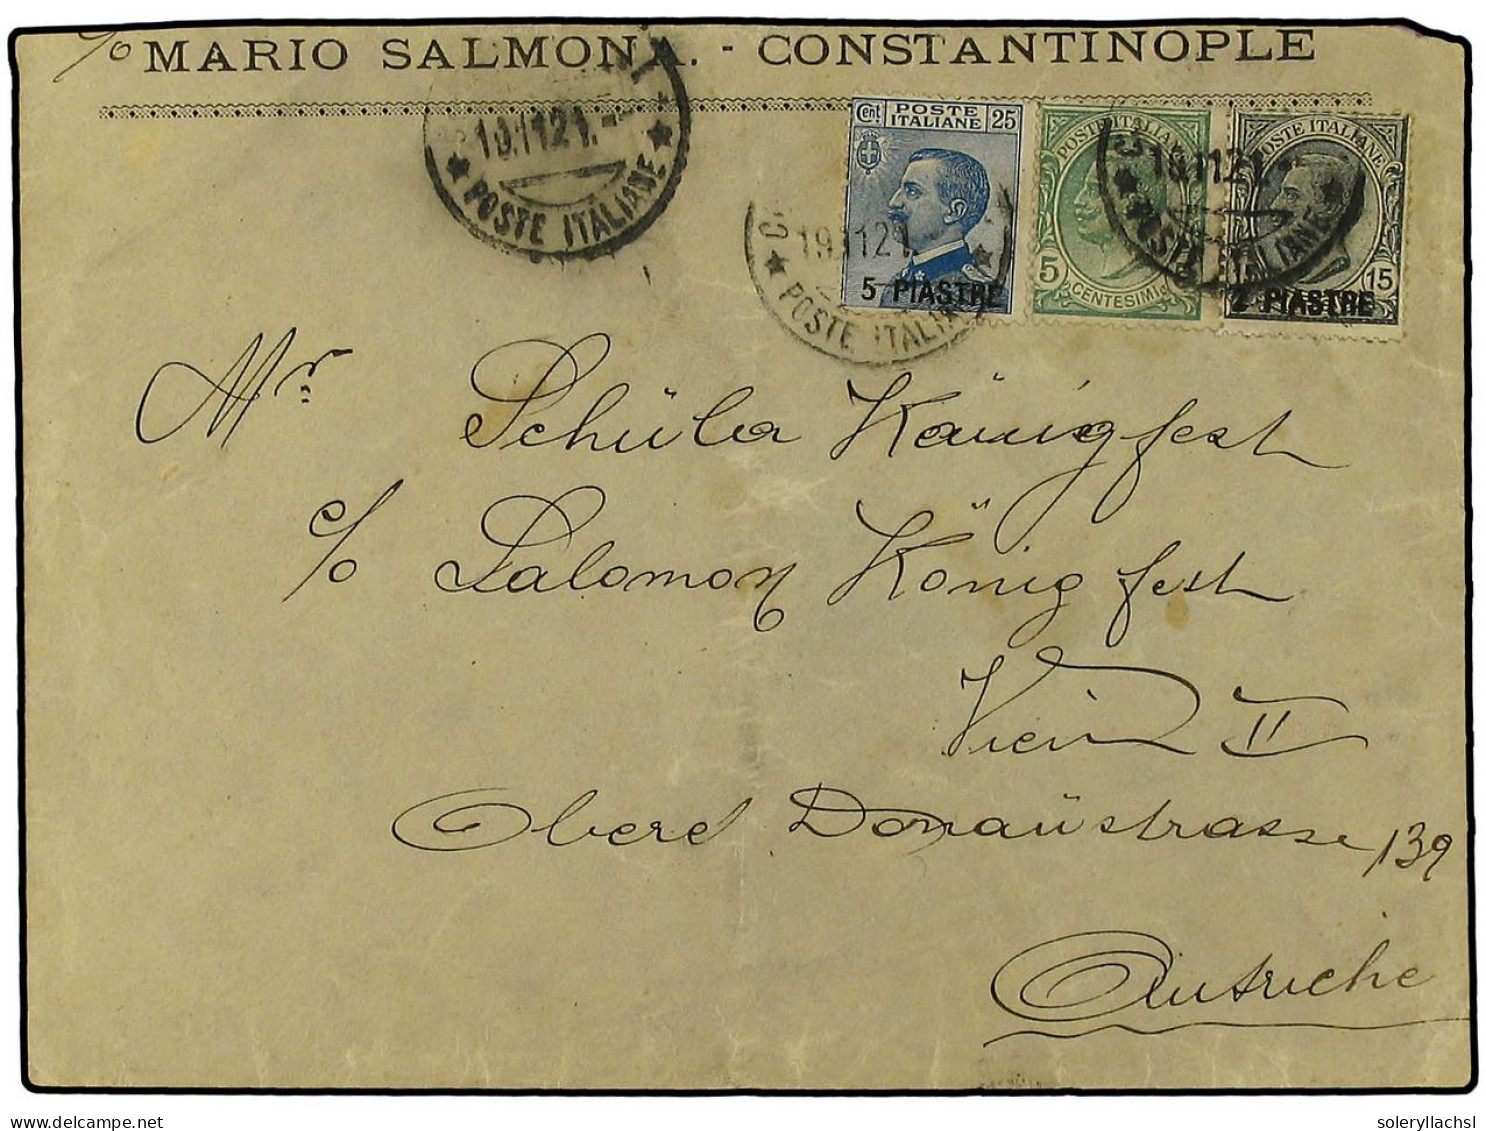 c/o MARIO SALMONA. - CONSTANTINOPLE
19.11.21.
POSTE ITALIANE
Cent. POSTE ITALIANE 25
5 PIASTRE
C
19.11.21.
POSTE ITALIANE
POSTE ITALIANE
5
CENTESIMI
POSTE ITALIANE
15
2 PIASTRE
C
19.11.21.
POSTE ITALIANE
Mr Schüla Käinigfest
c/o Salomon König fest
Vien II
Oberd Donaüstrasse 139
Autriche
soleryllachsl